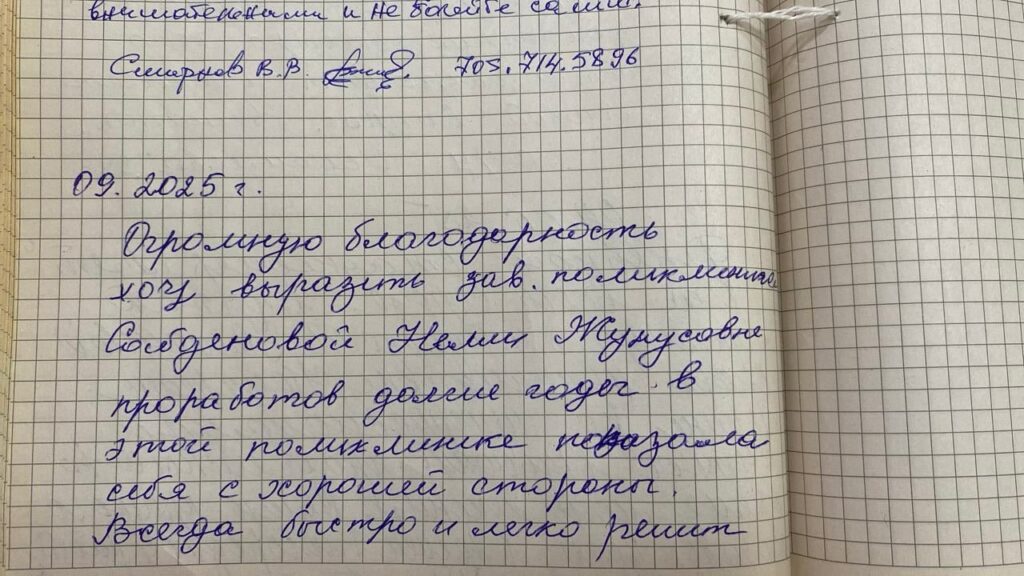 внимательными и не болейте сами.
Смирнов В.В. 705.714.5896
09.2025 г.
Огромную благодарность
хочу выразить зав. поликлиникой
Сабденовой Нелли Жунусовне
проработав долгие годы в
этой поликлинике показала
себя с хорошей стороны.
Всегда быстро и легко решит